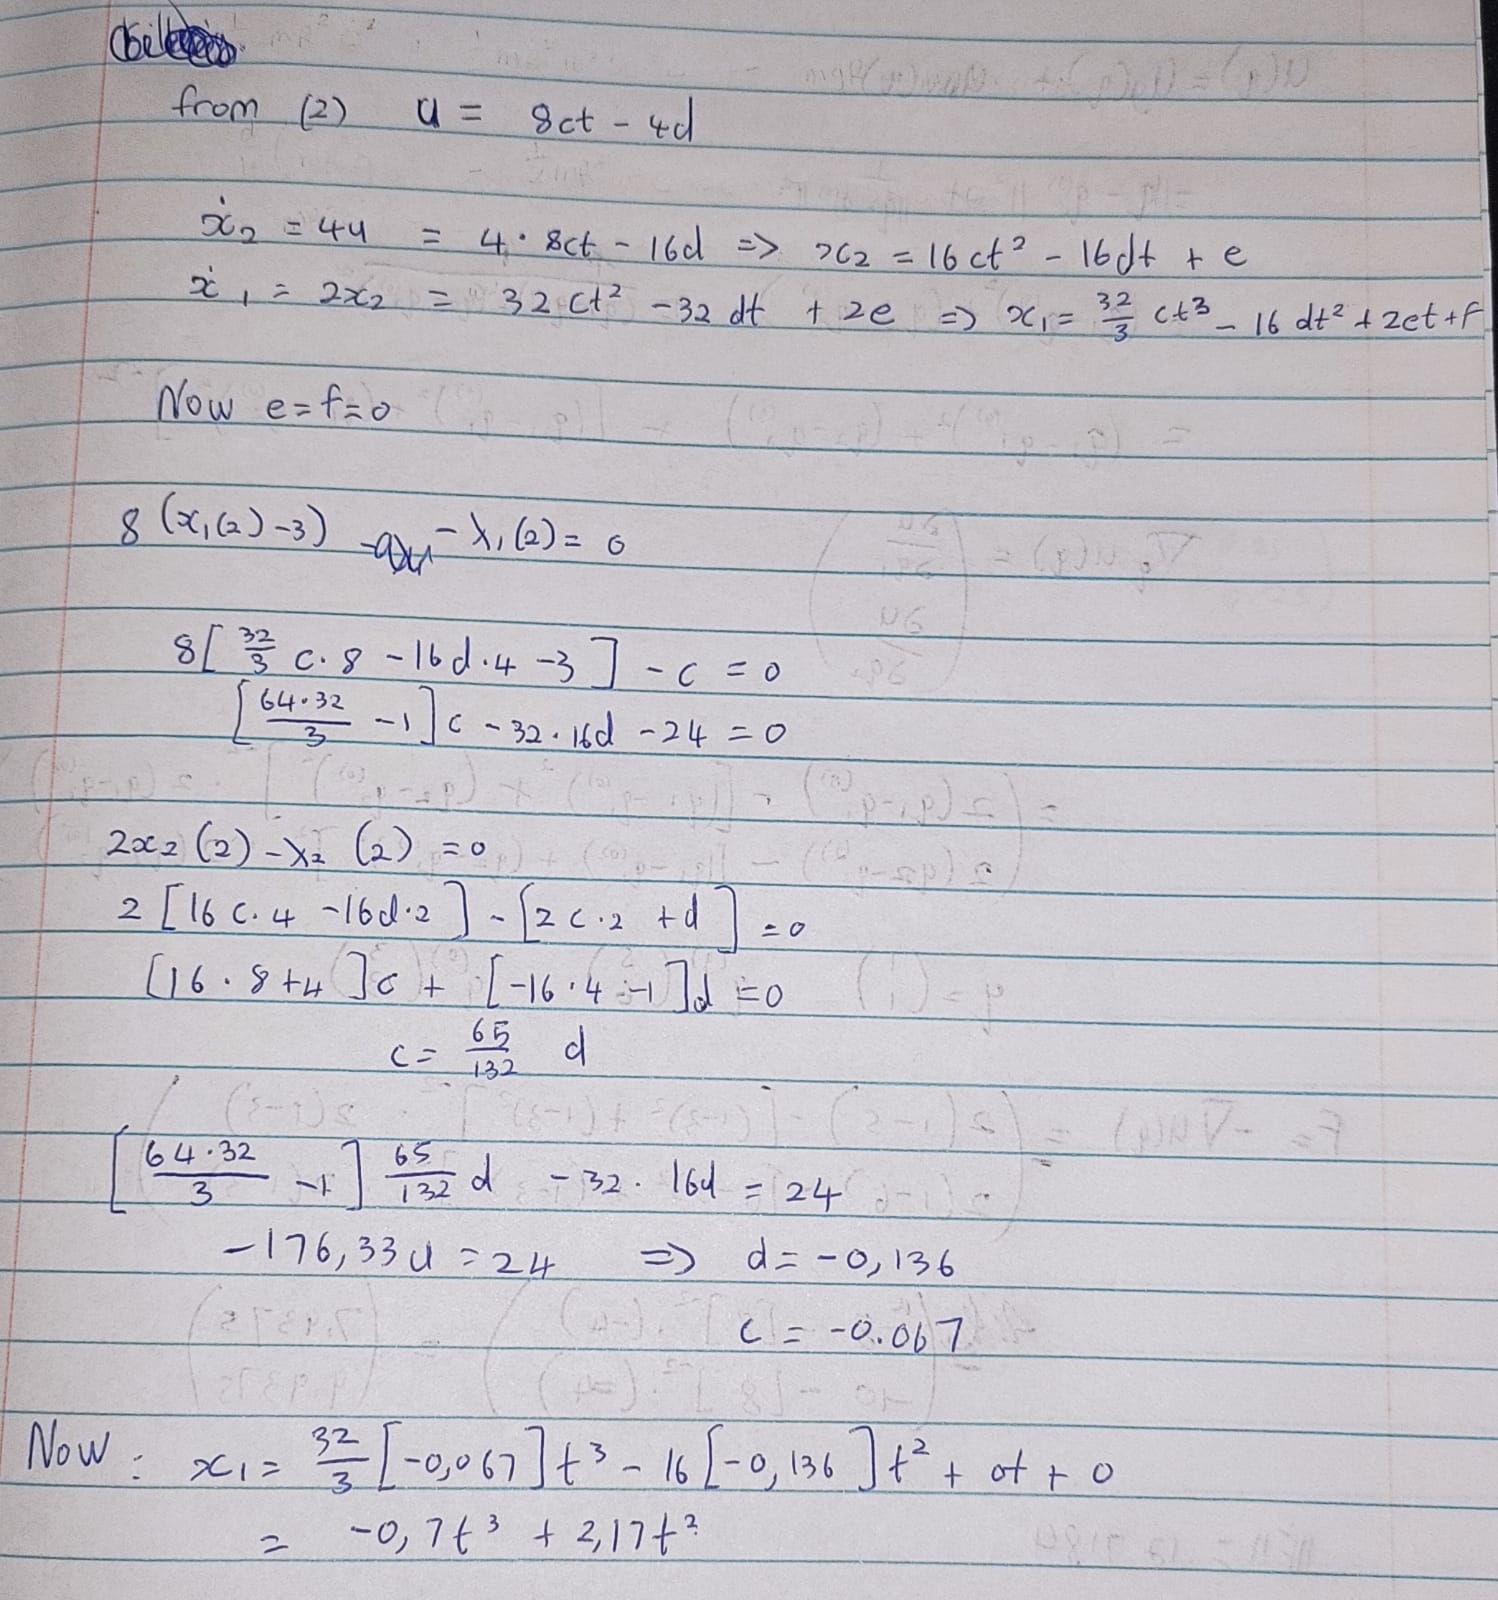 from (2) u = 8ct - 4d
ẋ₂ = 4u = 4 · 8ct - 16d => x₂ = 16ct² - 16dt + e
ẋ₁ = 2x₂ = 32ct² - 32dt + 2e => x₁ = 32/3 ct³ - 16dt² + 2et + f
Now e=f=0
8(x₁(2) - 3) - λ₁(2) = 0
8[32/3 c·8 - 16d·4 - 3] - c = 0
[64·32/3 - 1]c - 32·16d - 24 = 0
2x₂(2) - λ₂(2) = 0
2[16c·4 - 16d·2] - [2c·2 + d] = 0
[16·8+4]c + [-16·4-1]d = 0
c = 65/132 d
[64·32/3 - 1] 65/132 d - 32·16d = 24
-176,33d = 24 => d = -0,136
c = -0.067
Now: x₁ = 32/3 [-0,067]t³ - 16[-0,136]t² + 0t + 0
= -0,7t³ + 2,17t²